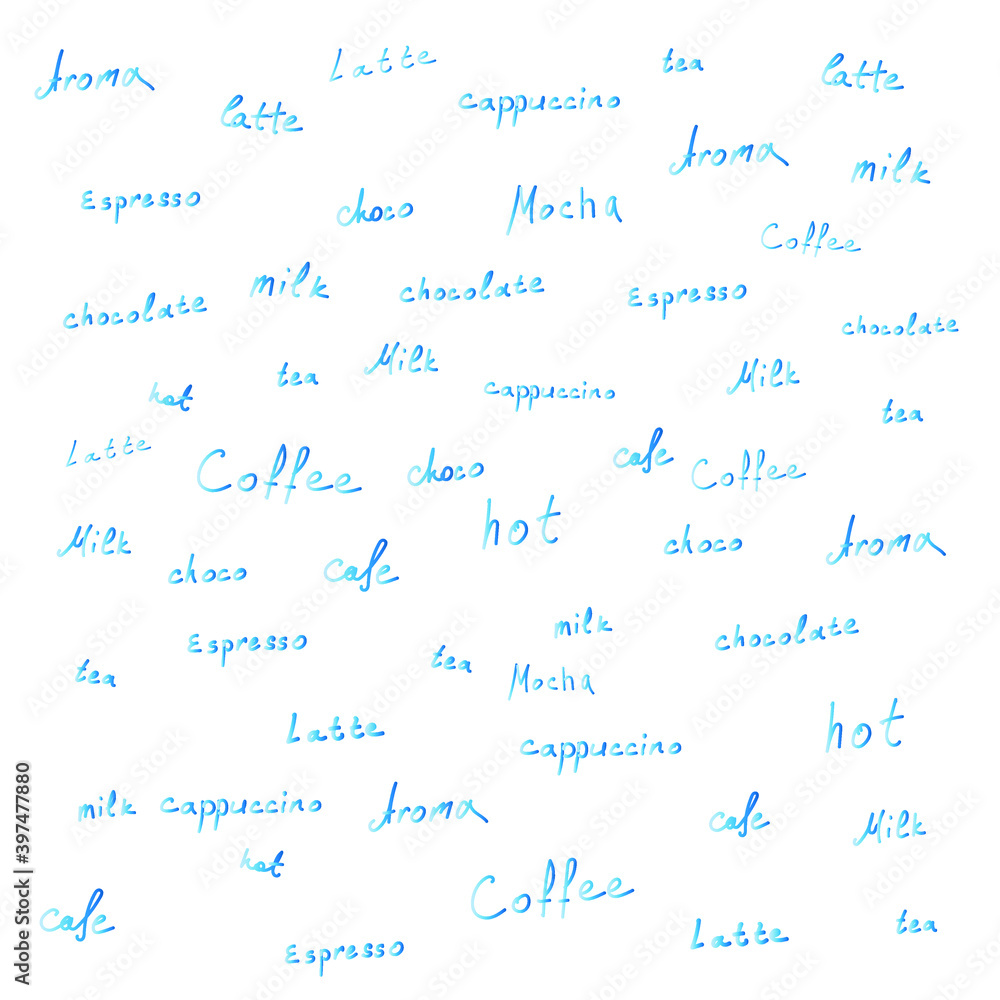 Aroma Latte tea latte
latte cappuccino
Aroma milk
Espresso choco Mocha
Coffee
chocolate milk chocolate Espresso
chocolate
hot tea Milk cappuccino Milk
tea
Latte Coffee choco cafe Coffee
Milk choco cafe hot choco Aroma
Espresso milk chocolate
tea tea Mocha
Latte cappuccino hot
milk cappuccino Aroma cafe Milk
hot Coffee
cafe Espresso Latte tea
Adobe Stock | #397477880